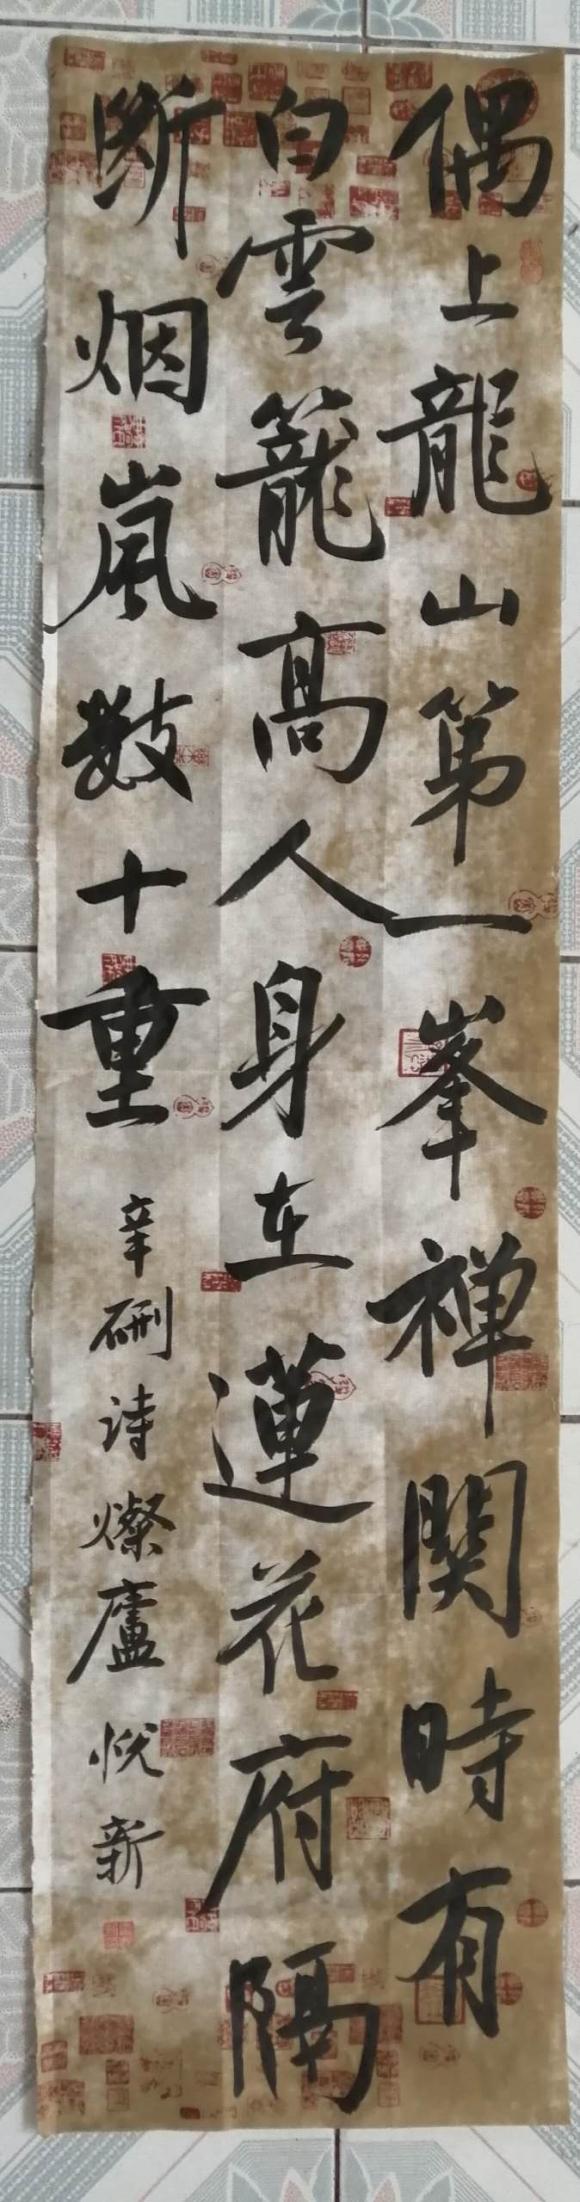 偶上龍山第一峯禅関時有
白雲籠高人身在蓮花府隔
断烟嵐数十重
辛硎诗燦廬悦新